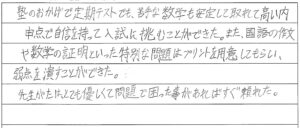 塾のおかげで定期テストでも、苦手な数学も安定して取れて高い内
申点で自信を持って入試に挑むことができた。また、国語の作文
や数学の証明といった特別な問題はプリントを用意してもらい、
弱点を潰すことができた。
先生がたはとても優しくて問題で困った事があればすぐ頼れた。